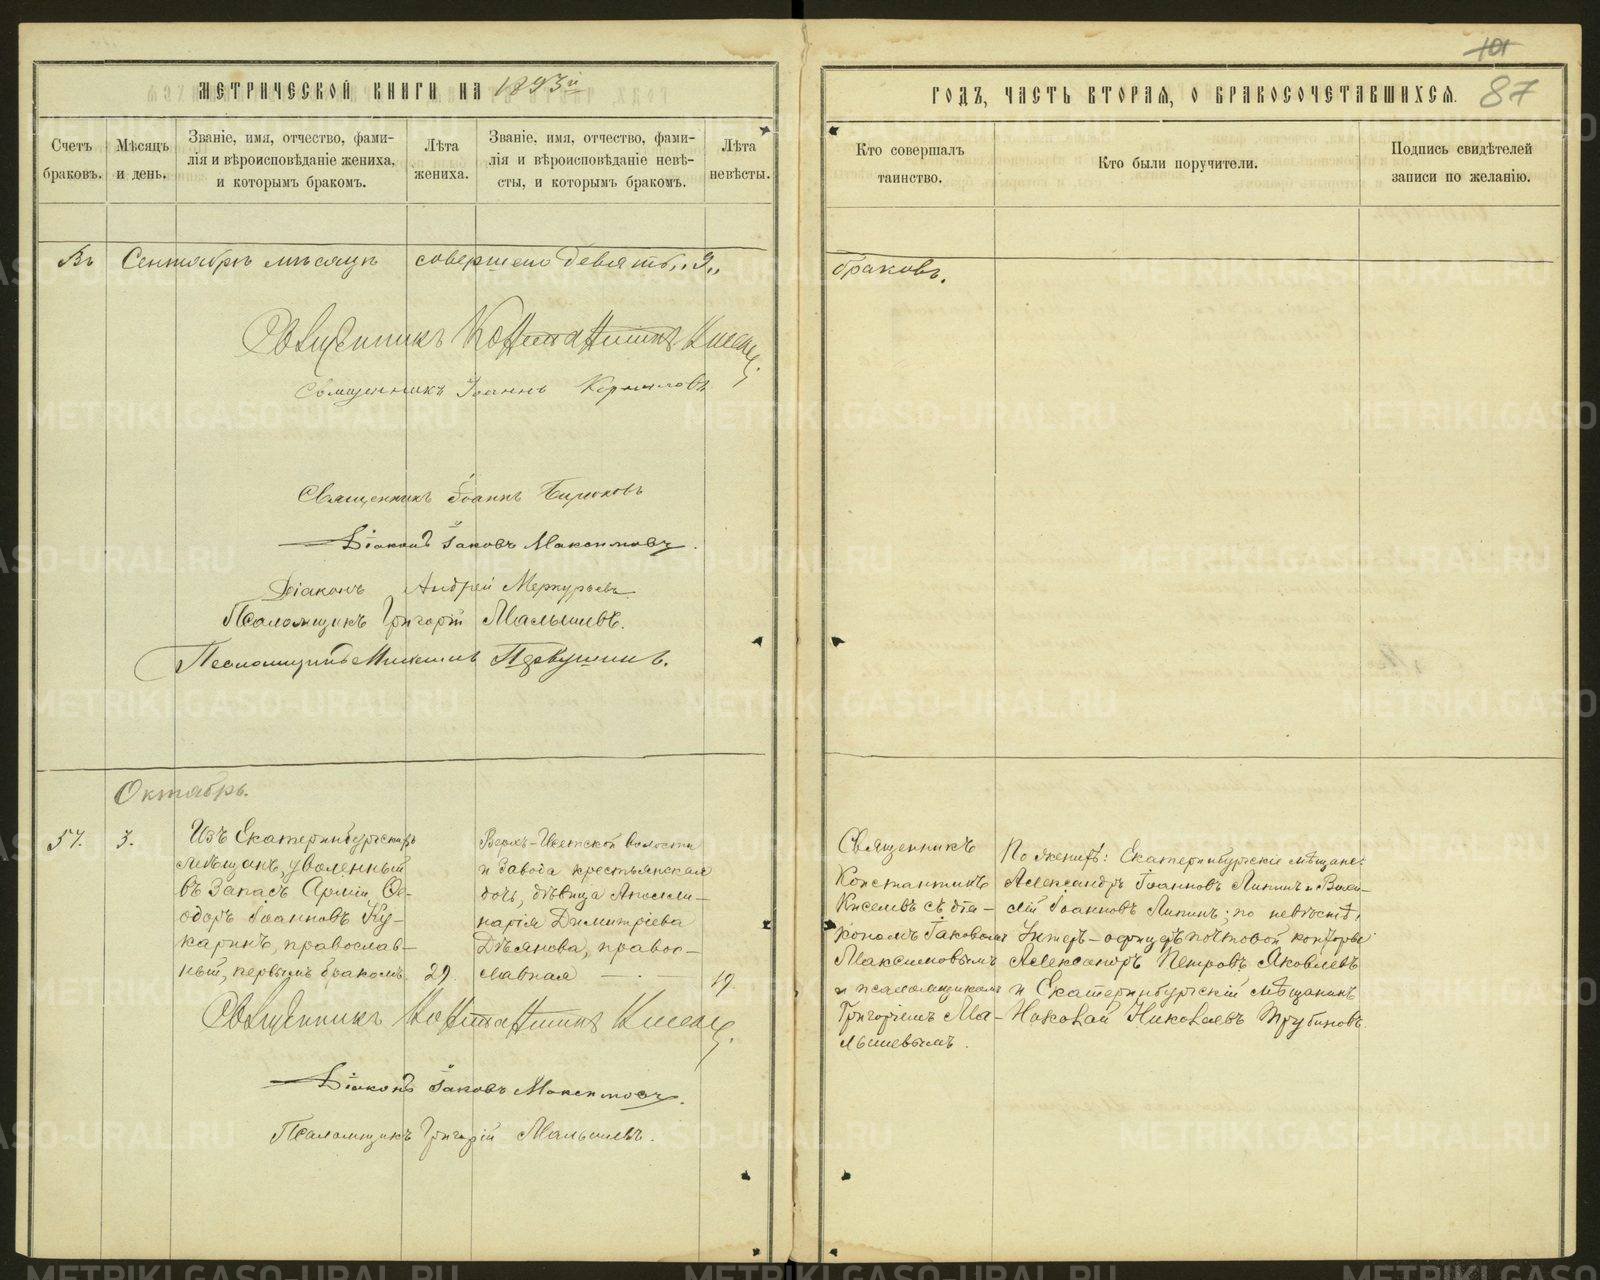 МЕТРИЧЕСКОЙ КНИГИ НА 1893й
ГОДЪ, ЧАСТЬ ВТОРАЯ, О БРАКОСОЧЕТАВШИХСЯ.
101
87
Счетъ
браковъ.
Мѣсяцъ
и день.
Званіе, имя, отчество, фами-
лія и вѣроисповѣданіе жениха,
и которымъ бракомъ.
Лѣта
жениха.
Званіе, имя, отчество, фами-
лія и вѣроисповѣданіе невѣ-
сты, и которымъ бракомъ.
Лѣта
невѣсты.
Кто совершалъ
таинство.
Кто были поручители.
Подпись свидѣтелей
записи по желанію.
Въ Сентябрѣ мѣсяцѣ совершено девять „9„
браковъ.
Священникъ Константинъ Киселевъ
Священникъ Іоаннъ Корниловъ
Священникъ Іоаннъ Бирюковъ
Діаконъ Іаковъ Максимовъ.
Діаконъ Андрей Меркурьевъ
Псаломщикъ Григорій Малышевъ.
Псаломщикъ Первушинъ.
Октябрь.
57.
3.
Изъ Екатеринбургскихъ
мѣщанъ, уволенный
въ Запасъ Арміи, Ѳе-
одоръ Іоанновъ Ку-
каринъ, православ-
ный, первымъ бракомъ.
29.
Верхъ-Исетской волости
и Завода крестьянская
дочь, дѣвица Аполли-
нарія Димитріева
Дѣянова, правос-
лавная
19.
Священникъ Константинъ Киселевъ.
Діаконъ Іаковъ Максимовъ.
Псаломщикъ Григорій Малышевъ.
Священникъ
Константинъ
Киселевъ съ діа-
кономъ Іаковомъ
Максимовымъ
и псаломщикомъ
Григоріемъ Ма-
лышевымъ.
По женихѣ: Екатеринбургскіе мѣщане:
Александръ Іоанновъ Липинъ и Васи-
лій Іоанновъ Липинъ; по невѣстѣ:
Унтеръ-офицеръ почтовой конторы
Александръ Петровъ Яковлевъ
и Екатеринбургскій мѣщанинъ
Николай Николаевъ Трубиновъ.
METRIKI.GASO-URAL.RU